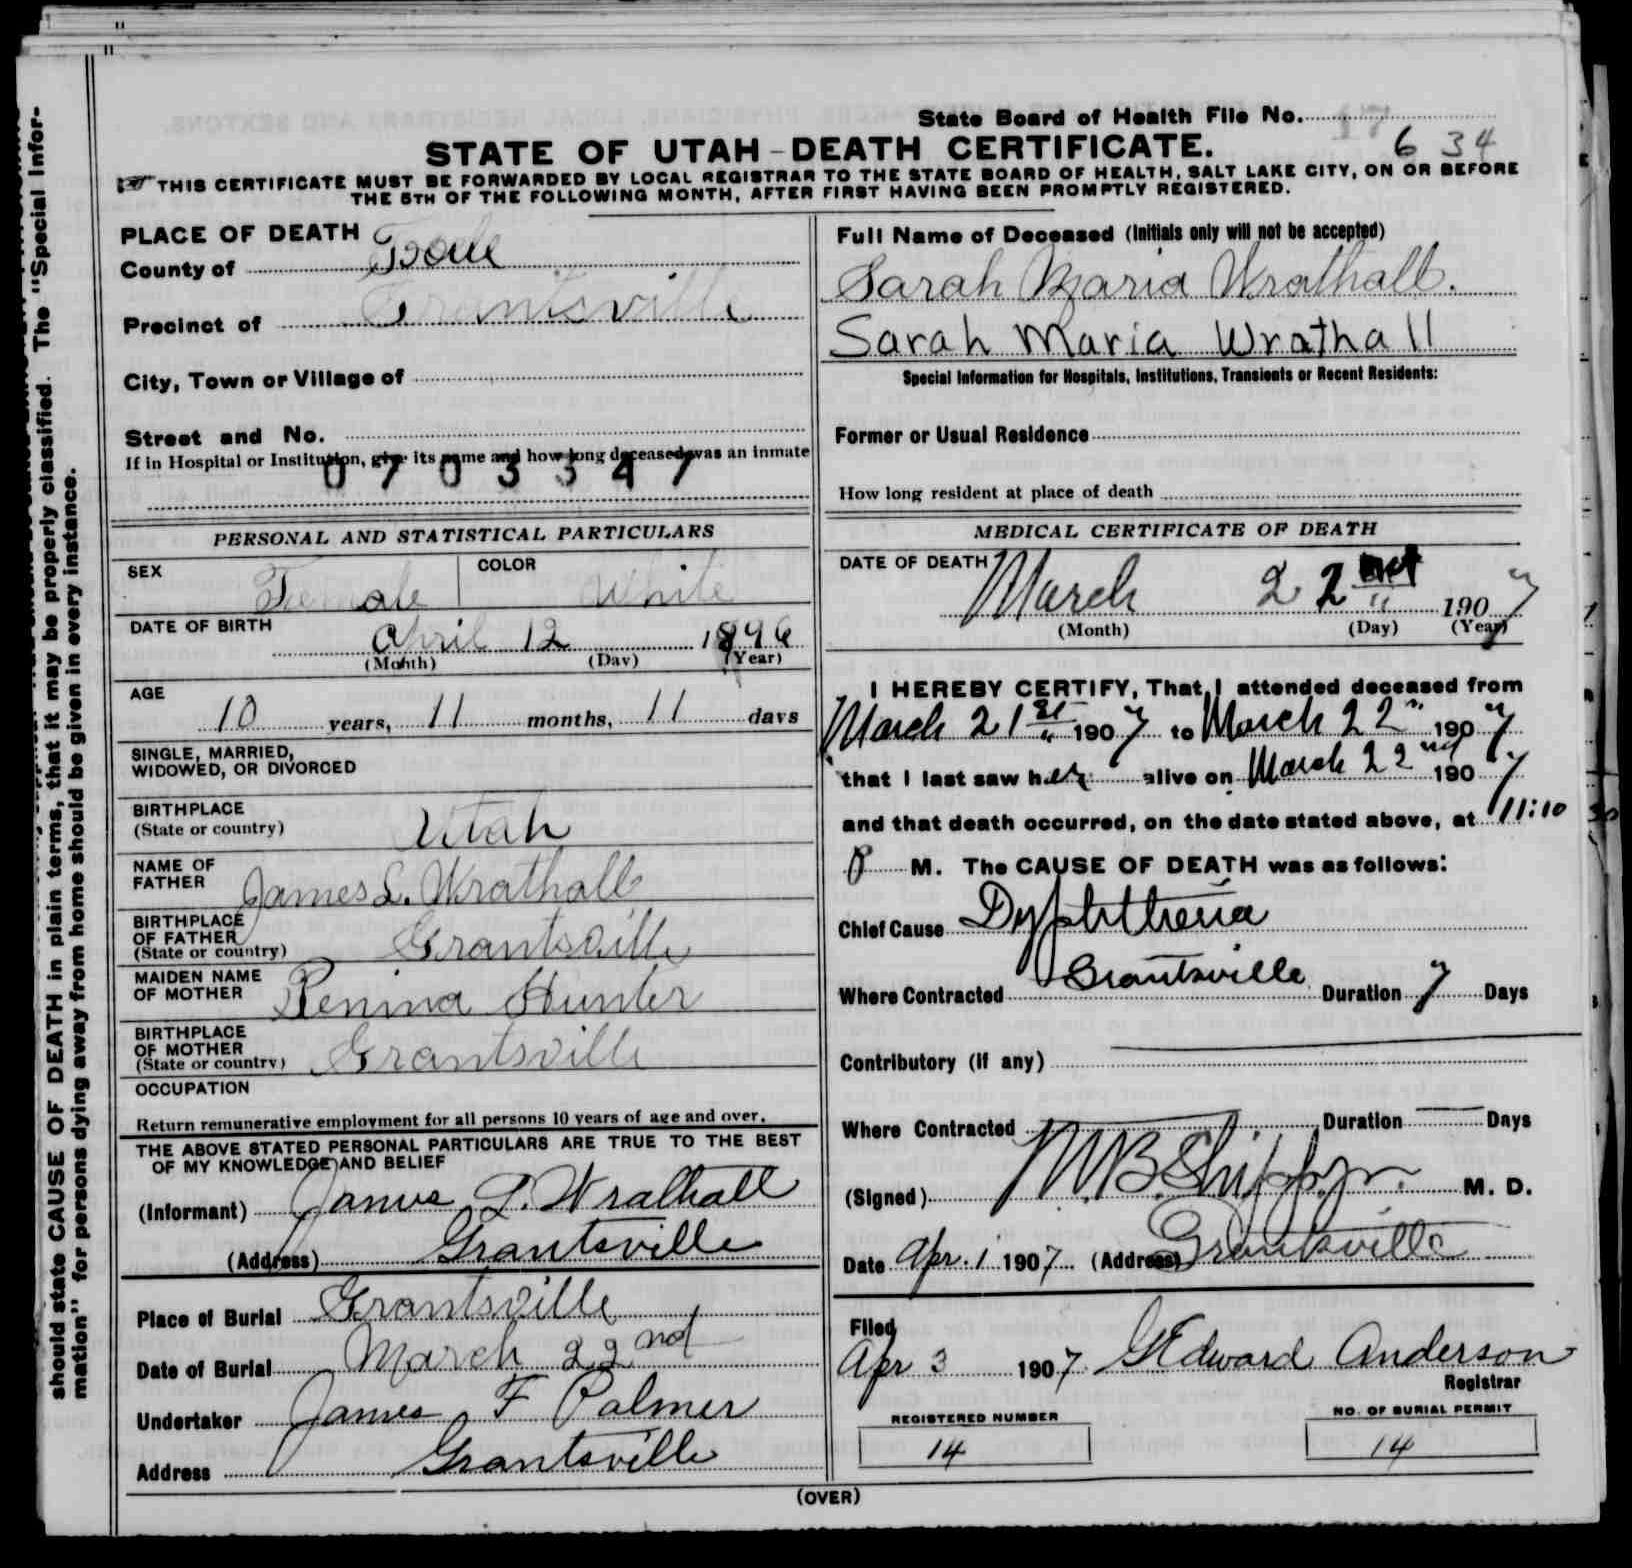 State Board of Health File No. 17
6 34
STATE OF UTAH - DEATH CERTIFICATE.
THIS CERTIFICATE MUST BE FORWARDED BY LOCAL REGISTRAR TO THE STATE BOARD OF HEALTH, SALT LAKE CITY, ON OR BEFORE
THE 5TH OF THE FOLLOWING MONTH, AFTER FIRST HAVING BEEN PROMPTLY REGISTERED.
should state CAUSE OF DEATH in plain terms, that it may be properly classified. The "Special Infor-
mation" for persons dying away from home should be given in every instance.
PLACE OF DEATH
County of Tooele
Precinct of Grantsville
City, Town or Village of
Street and No.
If in Hospital or Institution, give its name and how long deceased was an inmate
0703347
PERSONAL AND STATISTICAL PARTICULARS
SEX Female COLOR White
DATE OF BIRTH April 12 1896
(Month) (Day) (Year)
AGE
10 years, 11 months, 11 days
SINGLE, MARRIED,
WIDOWED, OR DIVORCED
BIRTHPLACE
(State or country) Utah
NAME OF
FATHER James L. Wrathall
BIRTHPLACE
OF FATHER
(State or country) Grantsville
MAIDEN NAME
OF MOTHER Penina Hunter
BIRTHPLACE
OF MOTHER
(State or country) Grantsville
OCCUPATION
Return remunerative employment for all persons 10 years of age and over.
THE ABOVE STATED PERSONAL PARTICULARS ARE TRUE TO THE BEST
OF MY KNOWLEDGE AND BELIEF
(Informant) James L. Wrathall
(Address) Grantsville
Place of Burial Grantsville
Date of Burial March 22nd
Undertaker James F Palmer
Address Grantsville
Full Name of Deceased (Initials only will not be accepted)
Sarah Maria Wrathall.
Sarah Maria Wrathall
Special Information for Hospitals, Institutions, Transients or Recent Residents:
Former or Usual Residence
How long resident at place of death
MEDICAL CERTIFICATE OF DEATH
DATE OF DEATH
March 22 1907
(Month) (Day) (Year)
I HEREBY CERTIFY, That I attended deceased from
March 21st 1907 to March 22" 1907
that I last saw her alive on March 22nd 1907
and that death occurred, on the date stated above, at 11:10
P M. The CAUSE OF DEATH was as follows:
Chief Cause Dyphtheria
Where Contracted Grantsville Duration 7 Days
Contributory (if any)
Where Contracted Duration Days
(Signed) M. D.
Date Apr. 1 1907 (Address) Grantsville
Filed
Apr 3 1907 G Edward Anderson
Registrar
REGISTERED NUMBER
14
NO. OF BURIAL PERMIT
14
(OVER)